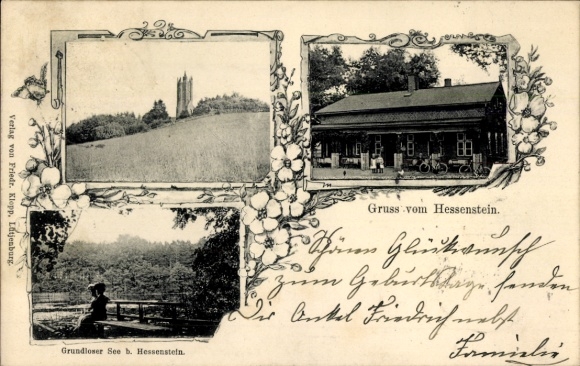 Verlag von Friedr. Klopp, Lütjenburg.
Gruss vom Hessenstein.
Schönen Glückwunsch
zum Geburtstage, senden
Dir Onkel Friedrich nebst
Familie
Grundloser See b. Hessenstein.